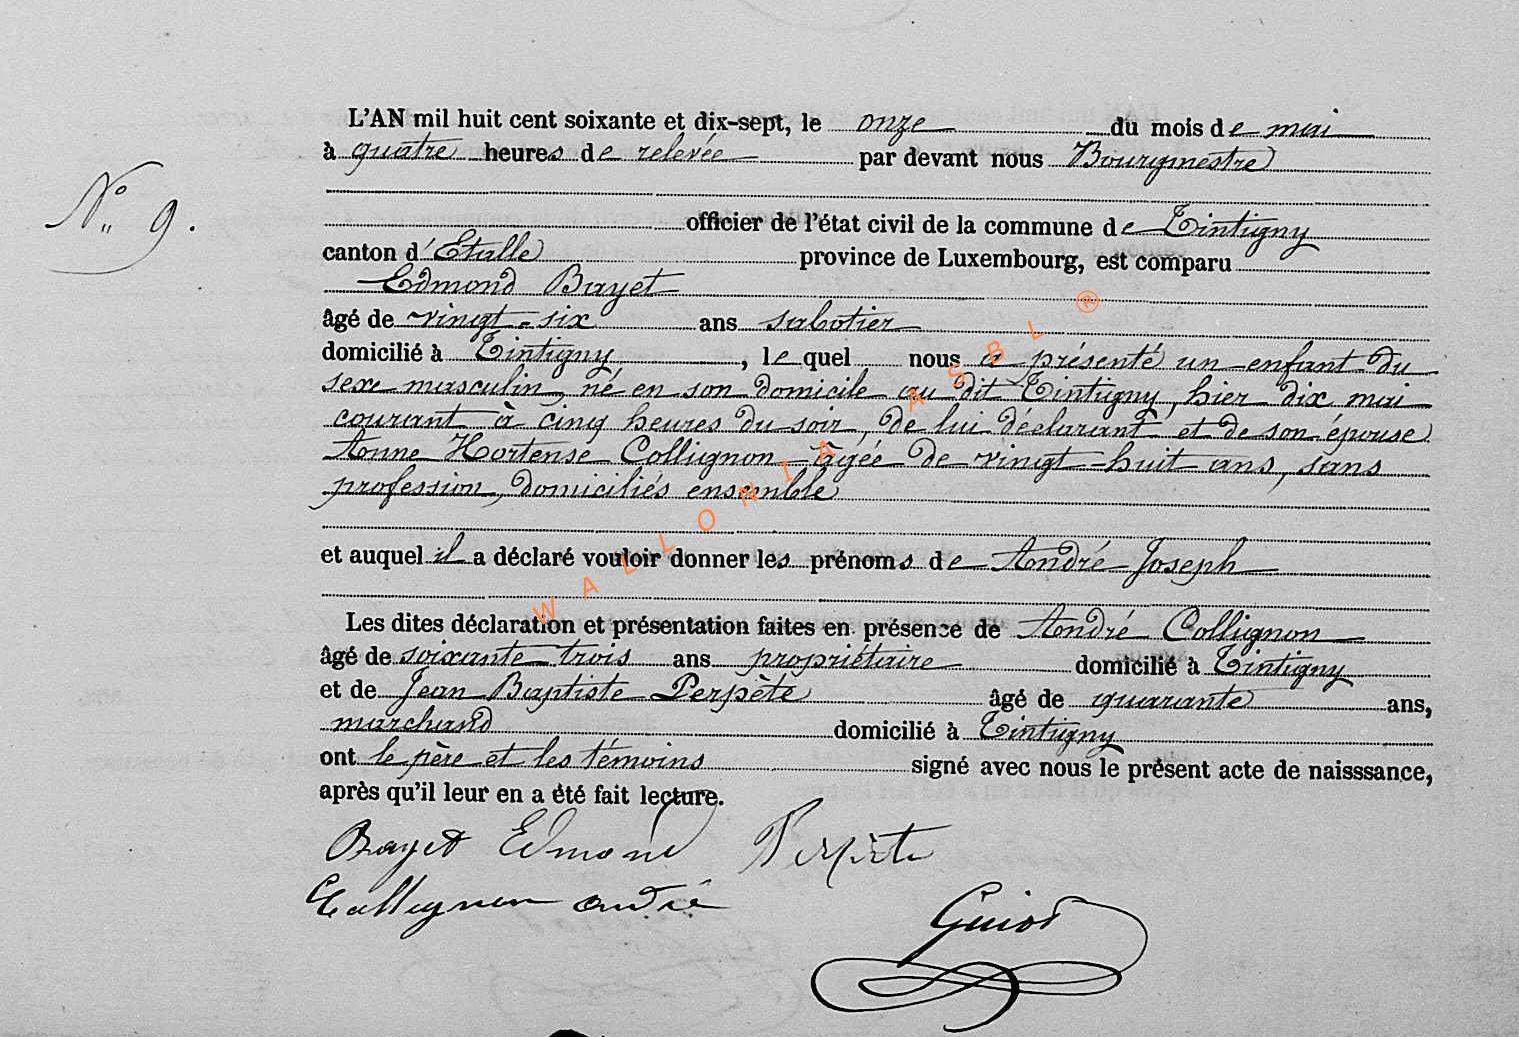 L'AN mil huit cent soixante et dix-sept, le onze du mois de mai
à quatre heures de relevée par devant nous Bourgmestre
N° 9.
officier de l'état civil de la commune de Tintigny
canton d'Etalle province de Luxembourg, est comparu
Edmond Bayet
âgé de vingt-six ans sabotier
domicilié à Tintigny, lequel nous a présenté un enfant du
sexe masculin, né en son domicile au dit Tintigny, hier dix mai
courant à cinq heures du soir, de lui déclarant et de son épouse
Anne Hortense Collignon âgée de vingt-huit ans, sans
profession, domiciliés ensemble
et auquel il a déclaré vouloir donner les prénoms de André Joseph
Les dites déclaration et présentation faites en présence de André Collignon
âgé de soixante trois ans propriétaire domicilié à Tintigny
et de Jean Baptiste Perpète âgé de quarante ans,
marchand domicilié à Tintigny
ont le père et les témoins signé avec nous le présent acte de naisssance,
après qu'il leur en a été fait lecture.
Bayet Edmond Perpète
Collignon andré
Guiot
WALLONIA ASBL ®